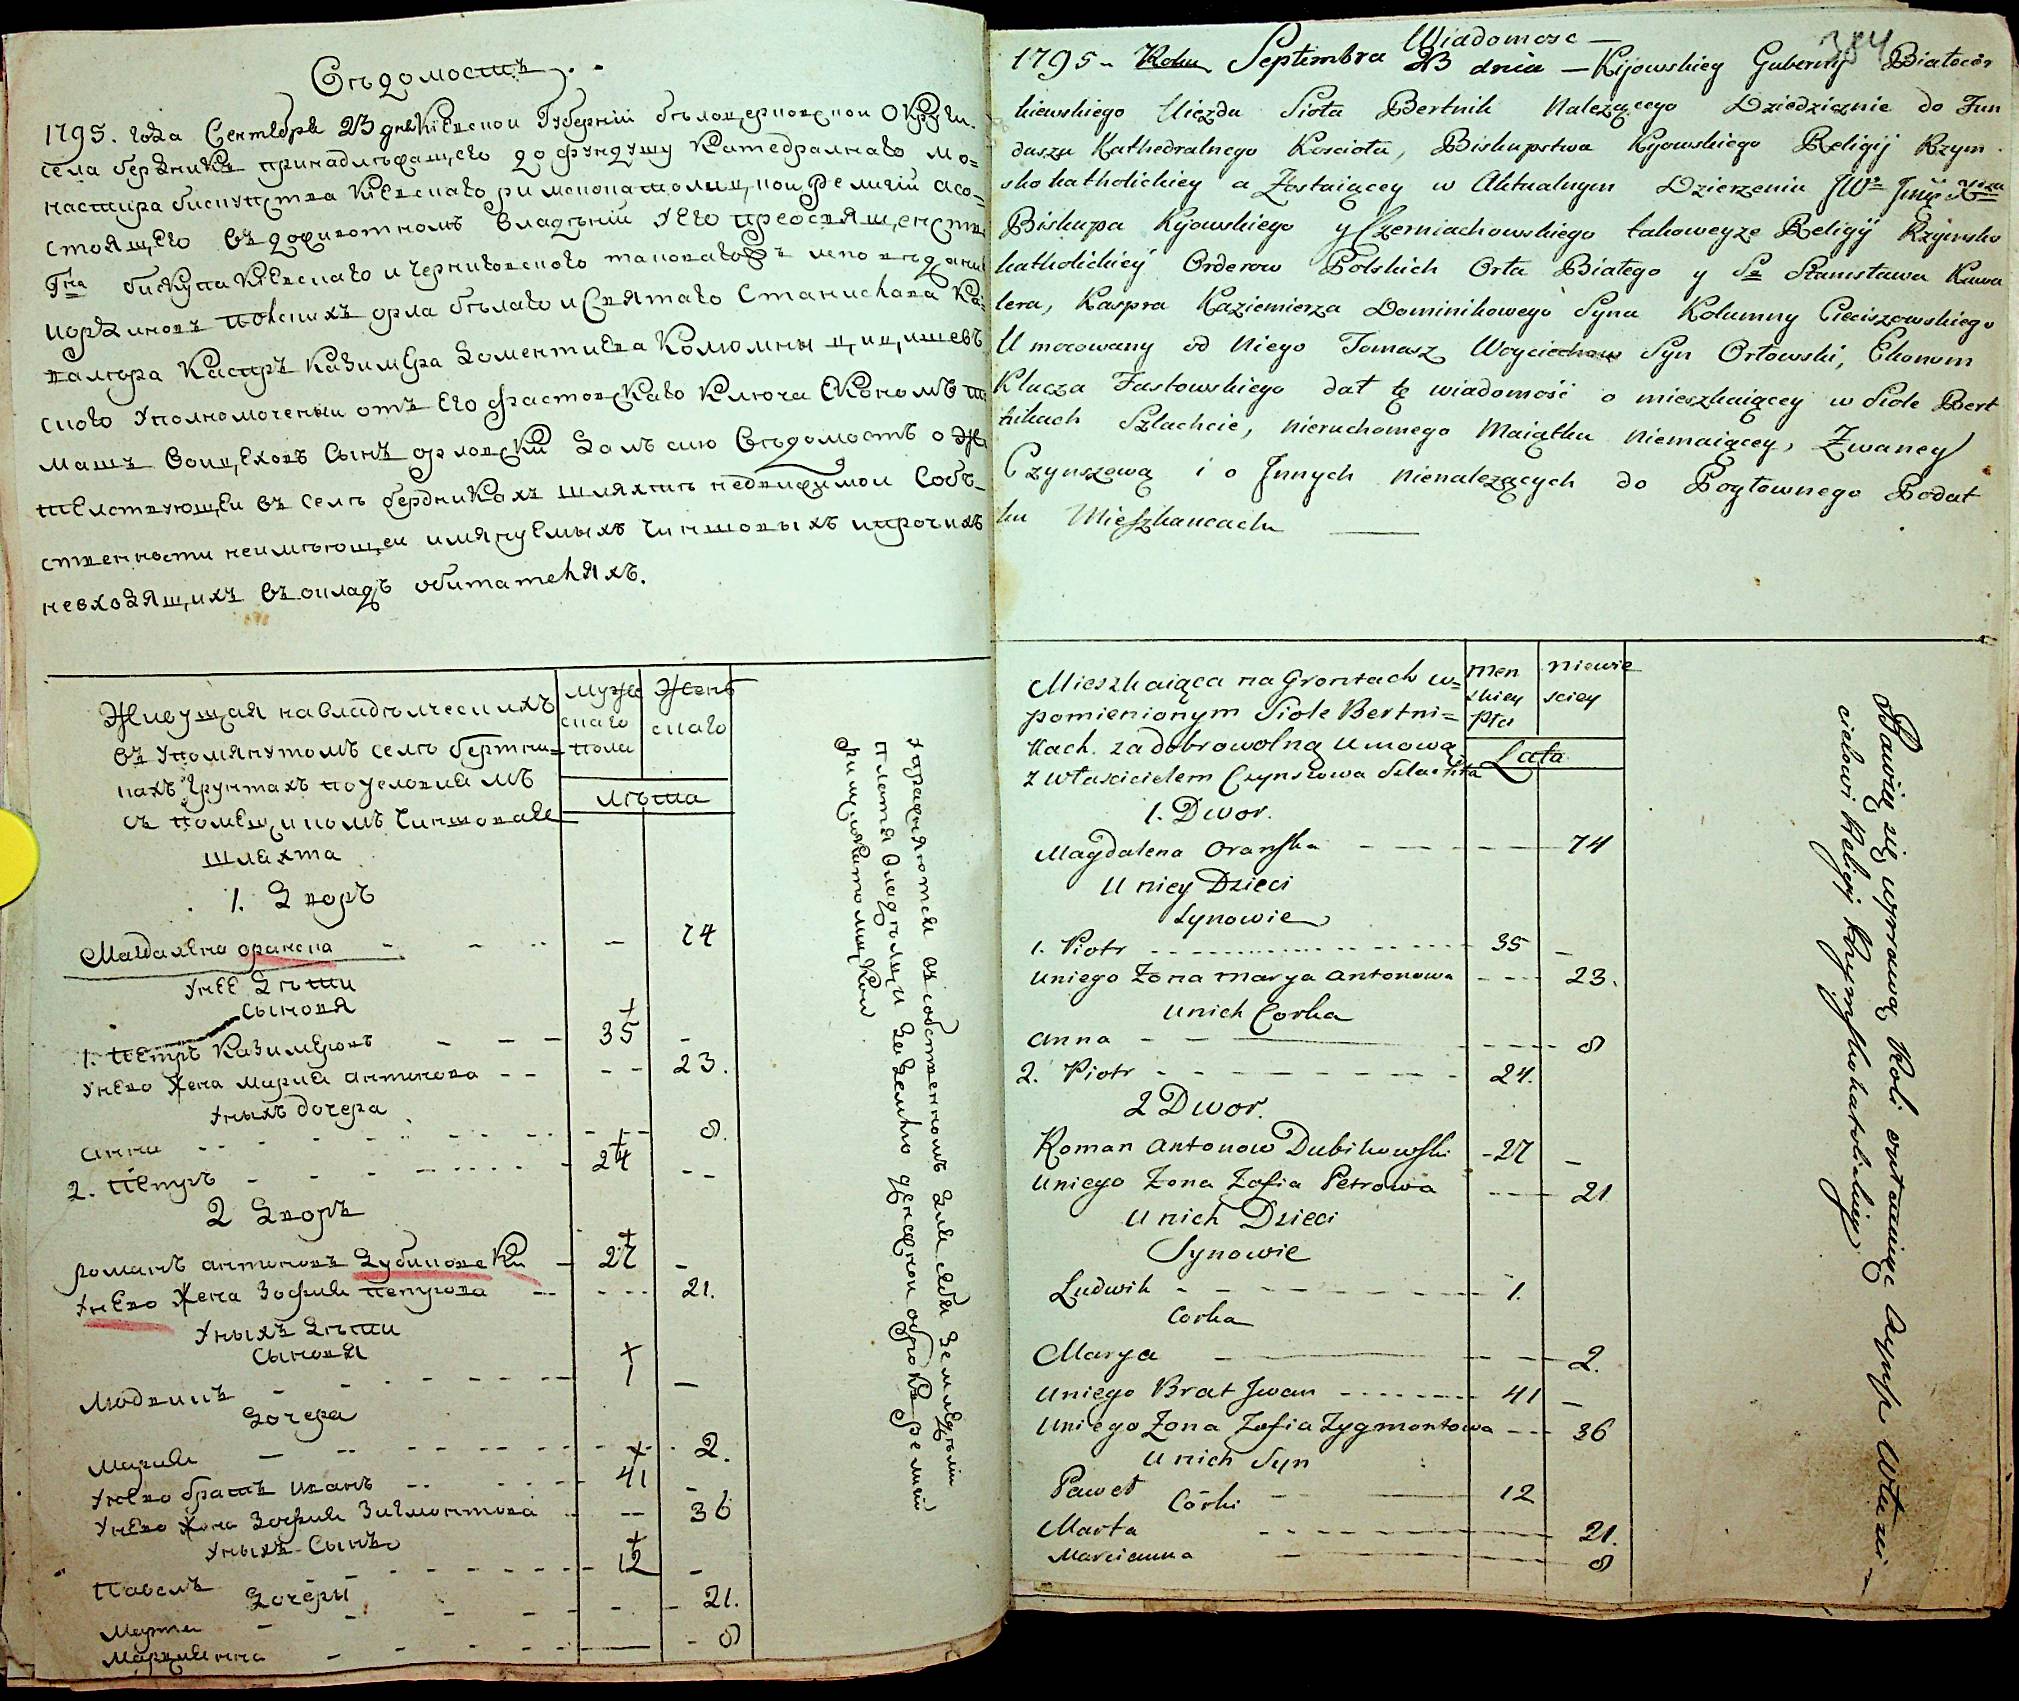 Вѣдомость
1795. года Сентября 23 дня Кіевской Губерніи бѣлоцерковской Округи.
села бертника принадлежащего до фундушу Катедралнаго Мо=
настира бискупства Кіевскаго римскокатолицкой Религіи а со=
стоящего въ доживотномъ владѣніи Его преосвященства
Гна бискупа Кіевскаго и Черниговского таковагожъ исповеданія
Кавалера Каспръ Казимера Доментиева Колюмны цицишев
ского Уполномоченый отъ Его фастовскаго Ключа Економъ То
машъ Войцеховъ Сынъ орловскій Далъ сию Вѣдомость о Жи
телствующей въ селѣ бердниках шляхтѣ недвижимой Соб=
ственности неимѣющей имянуемыхъ Чиншовыхъ и прочихъ
невходящихъ въ окладъ обитателяхъ.
Живущая на владѣлческихъ
въ упомянутомъ селѣ бертни=
кахъ Грунтахъ по условиямъ
съ помещикомъ Чиншовая
шляхта
муже
скаго
пола
Женъ
скаго
лѣта
1. Дворъ
Магдалена оранска 74
У нее Дѣти
Сыновя
1. Петръ Казимеровъ 35
У него Жена Мария антонова 23.
У ныхъ дочера
анна 8.
2. Петръ 24
2 Дворъ
романъ антоновъ Дубиковски 27
У него Жена Зофия петрова 21.
У ныхъ Дѣти
Сыновя
Людвикъ 1
Дочера
Мария 2.
У него братъ иванъ 41
У него Жена Зофия Зигмонтова 36
У ныхъ Сынъ
Павелъ 12
Дочери
Марта 21.
Марцианна 8
упражняются въ собственномъ для себя земледелии
платя владѣлцу за землю денежной оброкъ Религии
римскокатолицкой
384
Wiadomosc —
1795 - Roku Septembra 23 dnia — Kijowskiey Guberny Białocer
kiewskiego Uiezdu Sioła Bertnik Należącego Dziedzicznie do Fun
duszu Kathedralnego Kosciola, Biskupstwa Kyowskiego Religij Rzym
sko katholickiey a Zostaiącey w Aktualnym Dzierzeniu JWo Jmc Xdza
Biskupa Kyowskiego y Czerniachowskiego takoweyze Religij Rzymsko
katholickiey Orderow Polskich Orła Białego y Sgo Stanisława Kawa
lera, Kaspra Kaziemierza Dominikowego Syna Kolumny Cieciszowskiego
Umocowany od Niego Tomasz Woyciechow Syn Orłowski, Ekonom
Klucza Fastowskiego dał tę wiadomość o mieszkaiącey w Siole Bert
nikach Szlachcie, nieruchomego Maiątku niemaiącey, Zwaney
Czynszową i o Jnnych nienalezących do Pogłownego Podat
ku Mieszkancach
Mieszkaiąca na Grontach w=
pomienionym Siole Bertni=
kach. za dobrowolną umową
z własciciel​em Czynszowa Szlachta
męn
skiey
płci
niewie
sciey
Lata
1. Dwor.
Magdalena Oranska 74
U niey Dzieci
Synowie
1. Piotr 35
U niego Zona Marya Antonowa 23.
U nich Corka
Anna 8
2. Piotr 24.
2 Dwor.
Roman Antonow Dubikowski 27
U niego Zona Zofia Petrowa 21
U nich Dzieci
Synowie
Ludwik 1.
Corka
Marya 2.
U niego Brat Jwan 41
U niego Zona Zofia Zygmontowa 36
U nich Syn
Paweł 12
Córki
Marta 21.
Marcianna 8
Bawią się uprawą Roli opłacaiąc Czynsz Własci-
cielowi Religij Rzymskokatolickiey